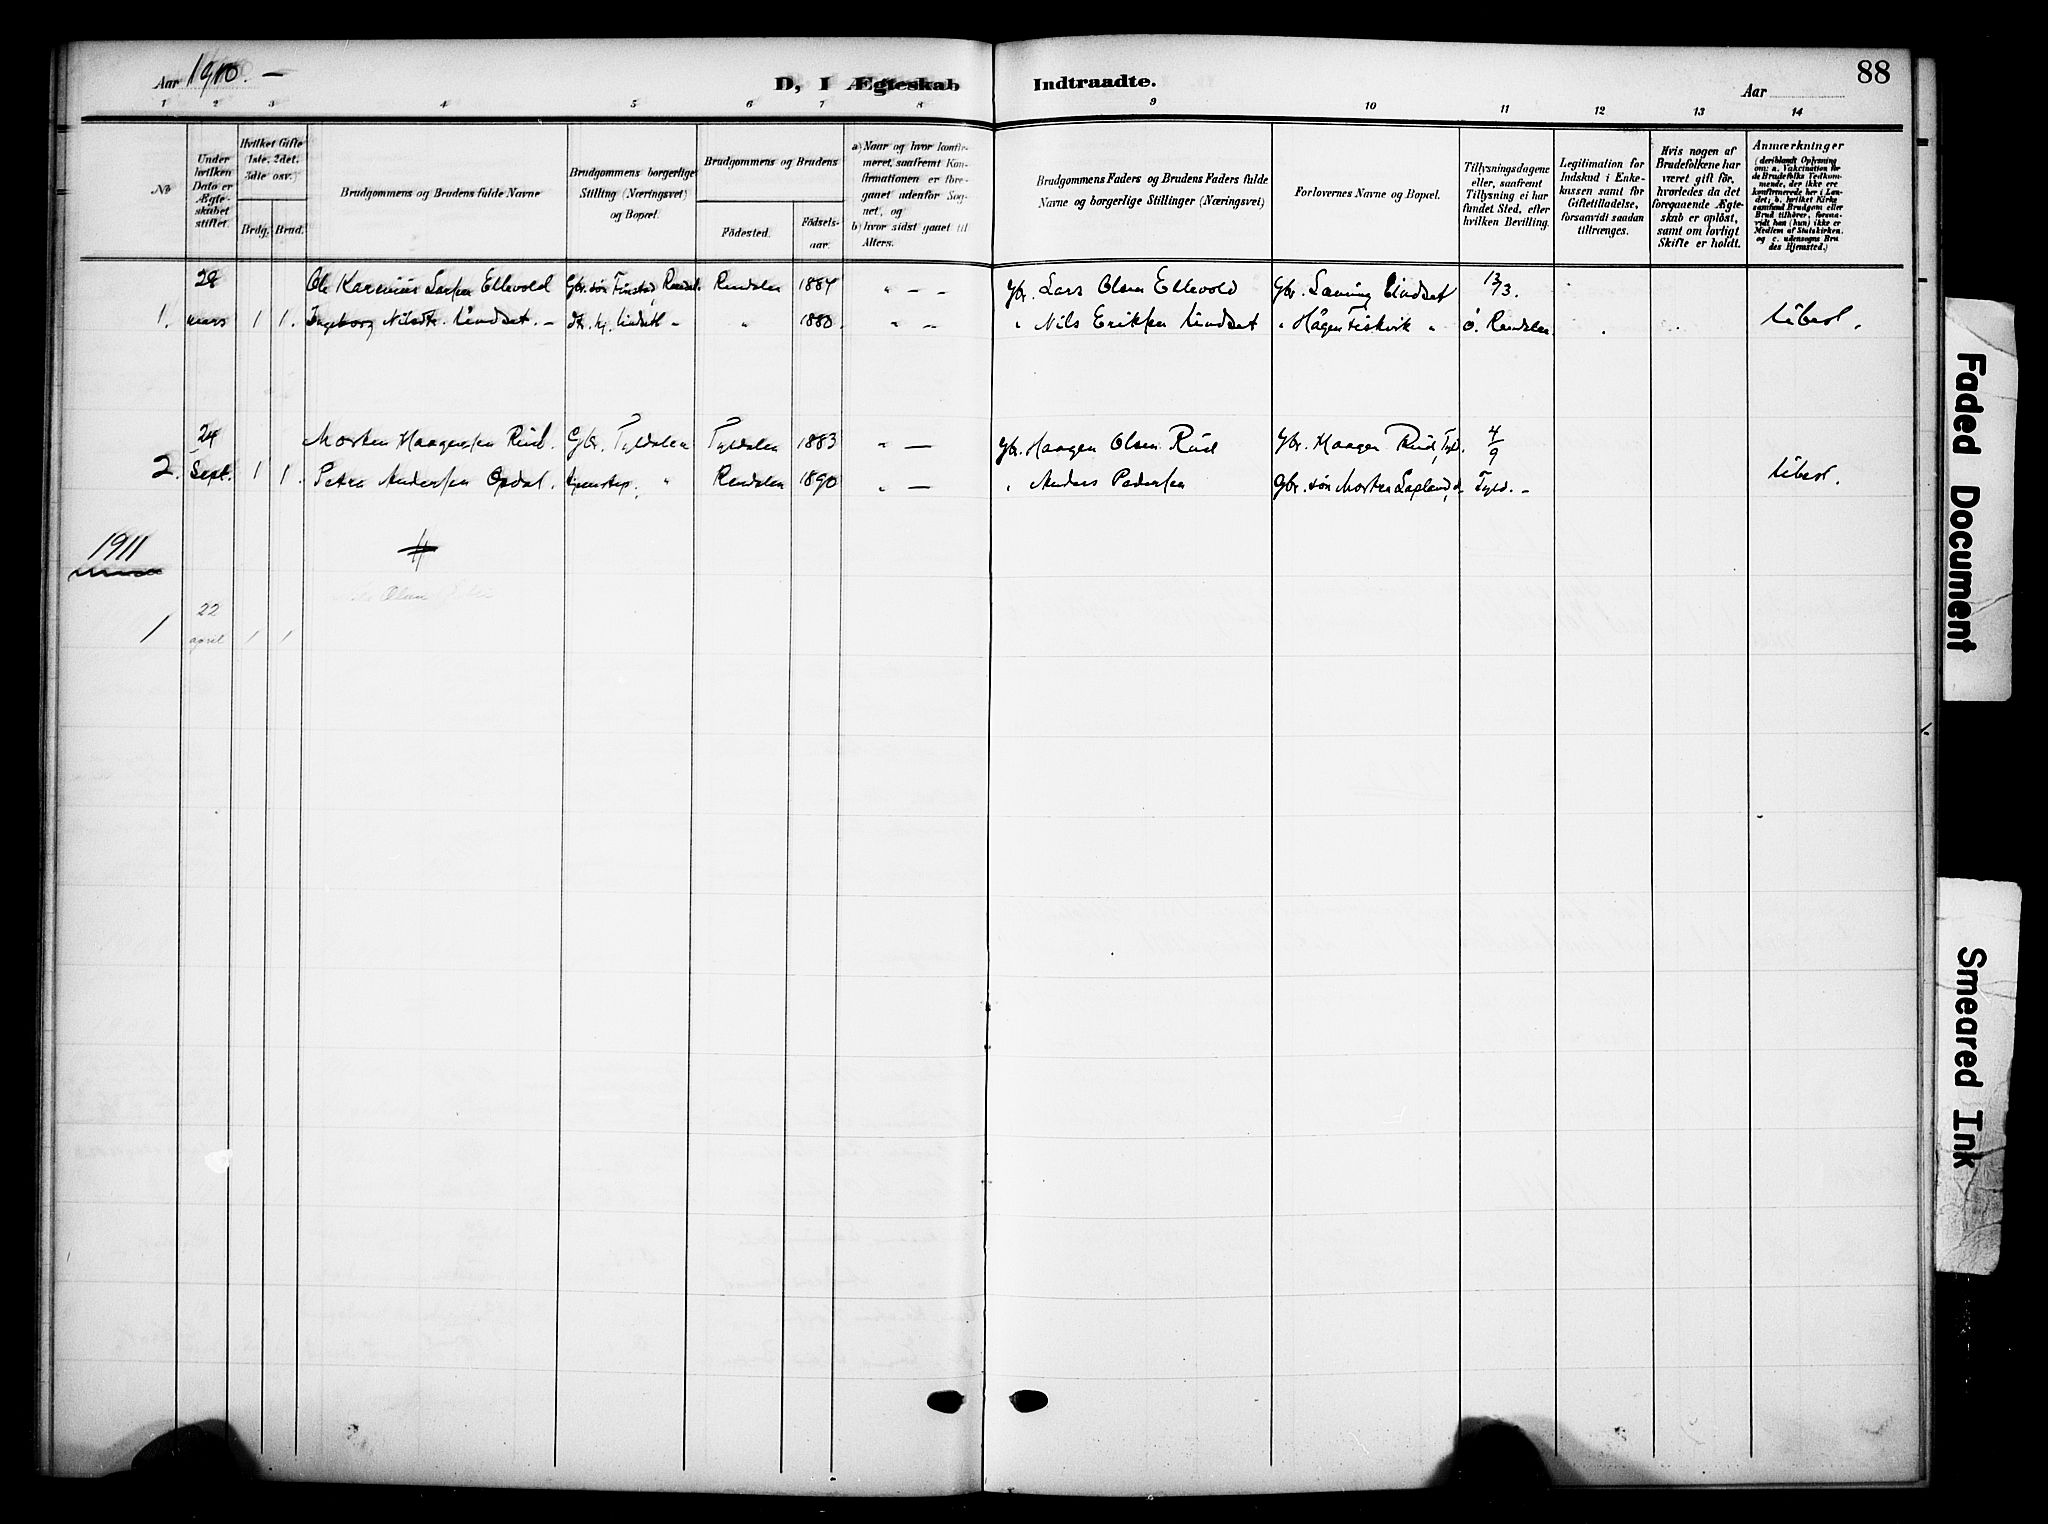 Aar 1910. –
D, I Ægteskab Indtraadte.
Aar
88
1 2 3 4 5 6 7 8 9 10 11 12 13 14
No
Under hvilken Dato er Ægteskabet stiftet.
Hvilket Gifte (1ste, 2det, 3die osv.)
Brdg. Brud.
Brudgommens og Brudens fulde Navne
Brudgommens borgerlige Stilling (Næringsvei) og Bopæl.
Brudgommens og Brudens
Fødested.
Fødselsaar.
a) Naar og hvor konfirmeret, saafremt Konfirmationen er foregaaet udenfor Sognet, og
b) hvor sidst gaaet til Alters.
Brudgommens Faders og Brudens Faders fulde Navne og borgerlige Stillinger (Næringsvei)
Forlovernes Navne og Bopæl.
Tillysningsdagene eller, saafremt Tillysning ei har fundet Sted, efter hvilken Bevilling.
Legitimation for Indskud i Enkekassen samt for Giftetilladelse, forsaavidt saadan tiltrænges.
Hvis nogen af Brudefolkene har været gift før, hvorledes da det foregaaende Ægteskab er opløst, samt om lovligt Skifte er holdt.
Anmærkninger
(deriblandt Oplysning om: a. Vakcination for de Brudefolks Vedkommende, der ikke ere konfirmerede her i Landet; b. hvilket Kirkesamfund Brudgom eller Brud tilhører, forsaavidt han (hun) ikke er Medlem af Statskirken, og c. udensogns Brudes Hjemsted.)
28 Ole Larsen Ellevold Gbr. søn Finstad, Rendal. Rendalen 1884 " – – Gbr. Lars Olsen Ellevold Gbr. 13/3.
1. mars 1 1. Ingeborg Nilsdtr. Undset. – " " 1880. " – – " Nils Eriksen Undset " Hågen Fiskvik " Ø. Rendalen Ubesl.
24 Morten Haagensen Rud. Gbr. Tyldalen Tyldalen 1883 " – Gbr. Haagen Olsen Rud Gbr. Haagen Rud, Tyl. 4/9
2. Sept. 1 1. Petra Andersen Opdal. " Rendalen 1890 " – " Anders Pedersen Gbr. søn Morten Tyld. – Ubesl.
1911
22
1 april 1 1
Faded Document
Smeared Ink